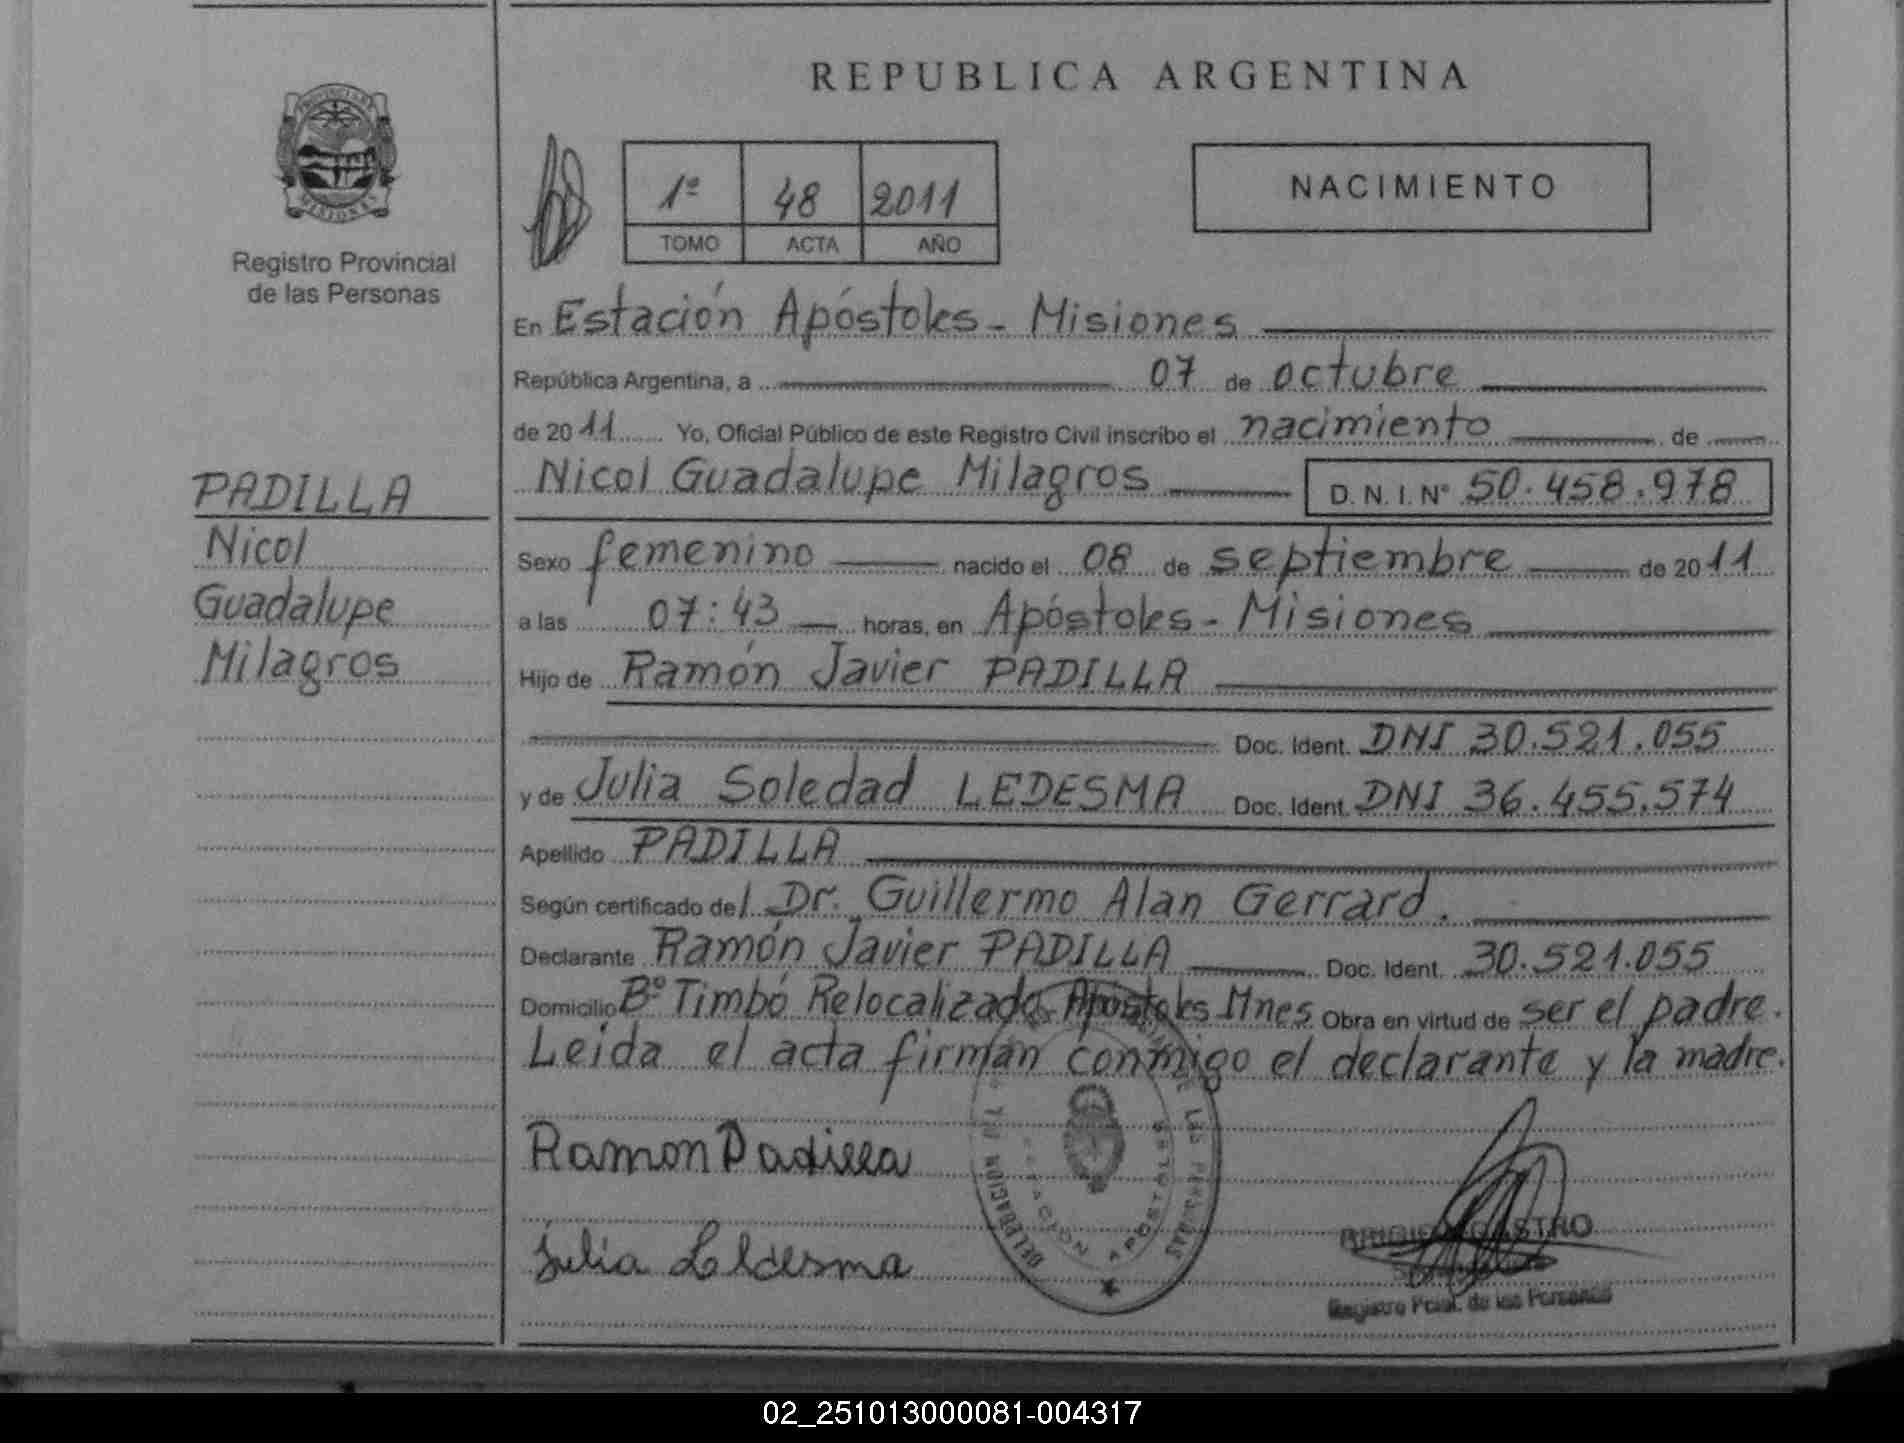 REPUBLICA ARGENTINA
PROVINCIA DE
MISIONES
Registro Provincial
de las Personas
1º 48 2011
TOMO ACTA AÑO
NACIMIENTO
En Estación Apóstoles - Misiones
República Argentina, a 07 de octubre
de 2011 Yo, Oficial Público de este Registro Civil inscribo el nacimiento de
PADILLA
Nicol
Guadalupe
Milagros
Nicol Guadalupe Milagros D.N.I. Nº 50.458.978
Sexo femenino nacido el 08 de septiembre de 2011
a las 07:43 horas, en Apóstoles - Misiones
Hijo de Ramón Javier PADILLA
Doc. Ident. DNI 30.521.055
y de Julia Soledad LEDESMA Doc. Ident. DNI 36.455.574
Apellido PADILLA
Según certificado del Dr. Guillermo Alan Gerrard.
Declarante Ramón Javier PADILLA Doc. Ident. 30.521.055
Domicilio Bº Timbó Relocalizado Apóstoles Mnes Obra en virtud de ser el padre.
Leída el acta firman conmigo el declarante y la madre.
Ramon Padilla
Julia Ledesma
DE LAS PERSONAS
ESTACION APOSTOLES
CASTRO
Registro Pcial. de las Personas
02_251013000081-004317